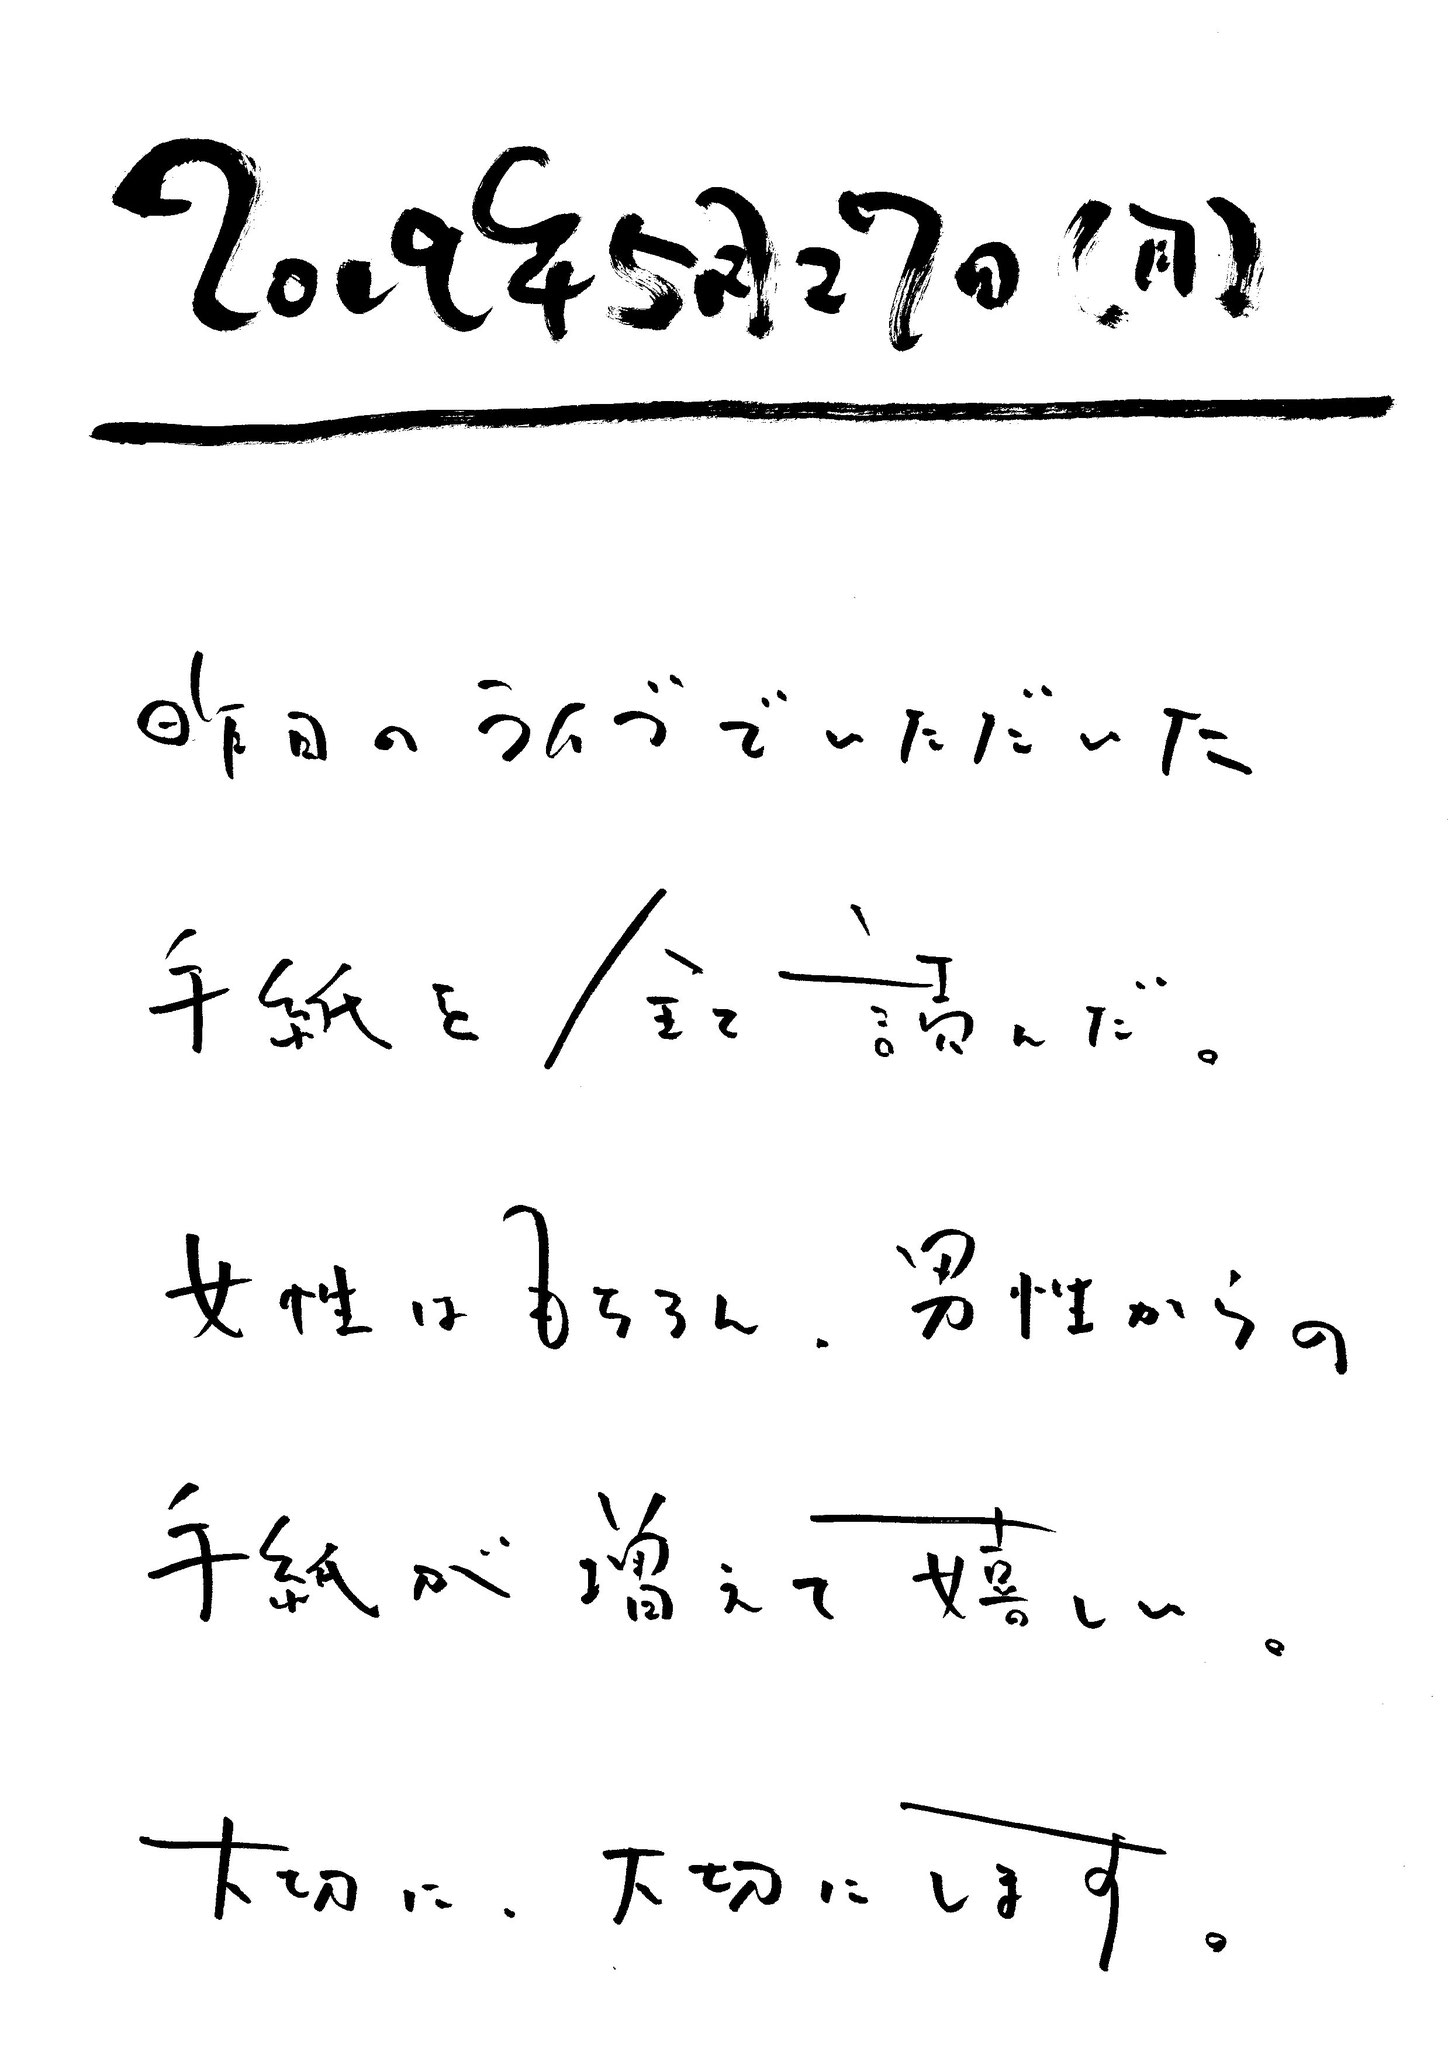 2019年5月27日(月)
昨日のライブでいただいた
手紙を全て読んだ。
女性はもちろん、男性からの
手紙が増えて嬉しい。
大切に、大切にします。